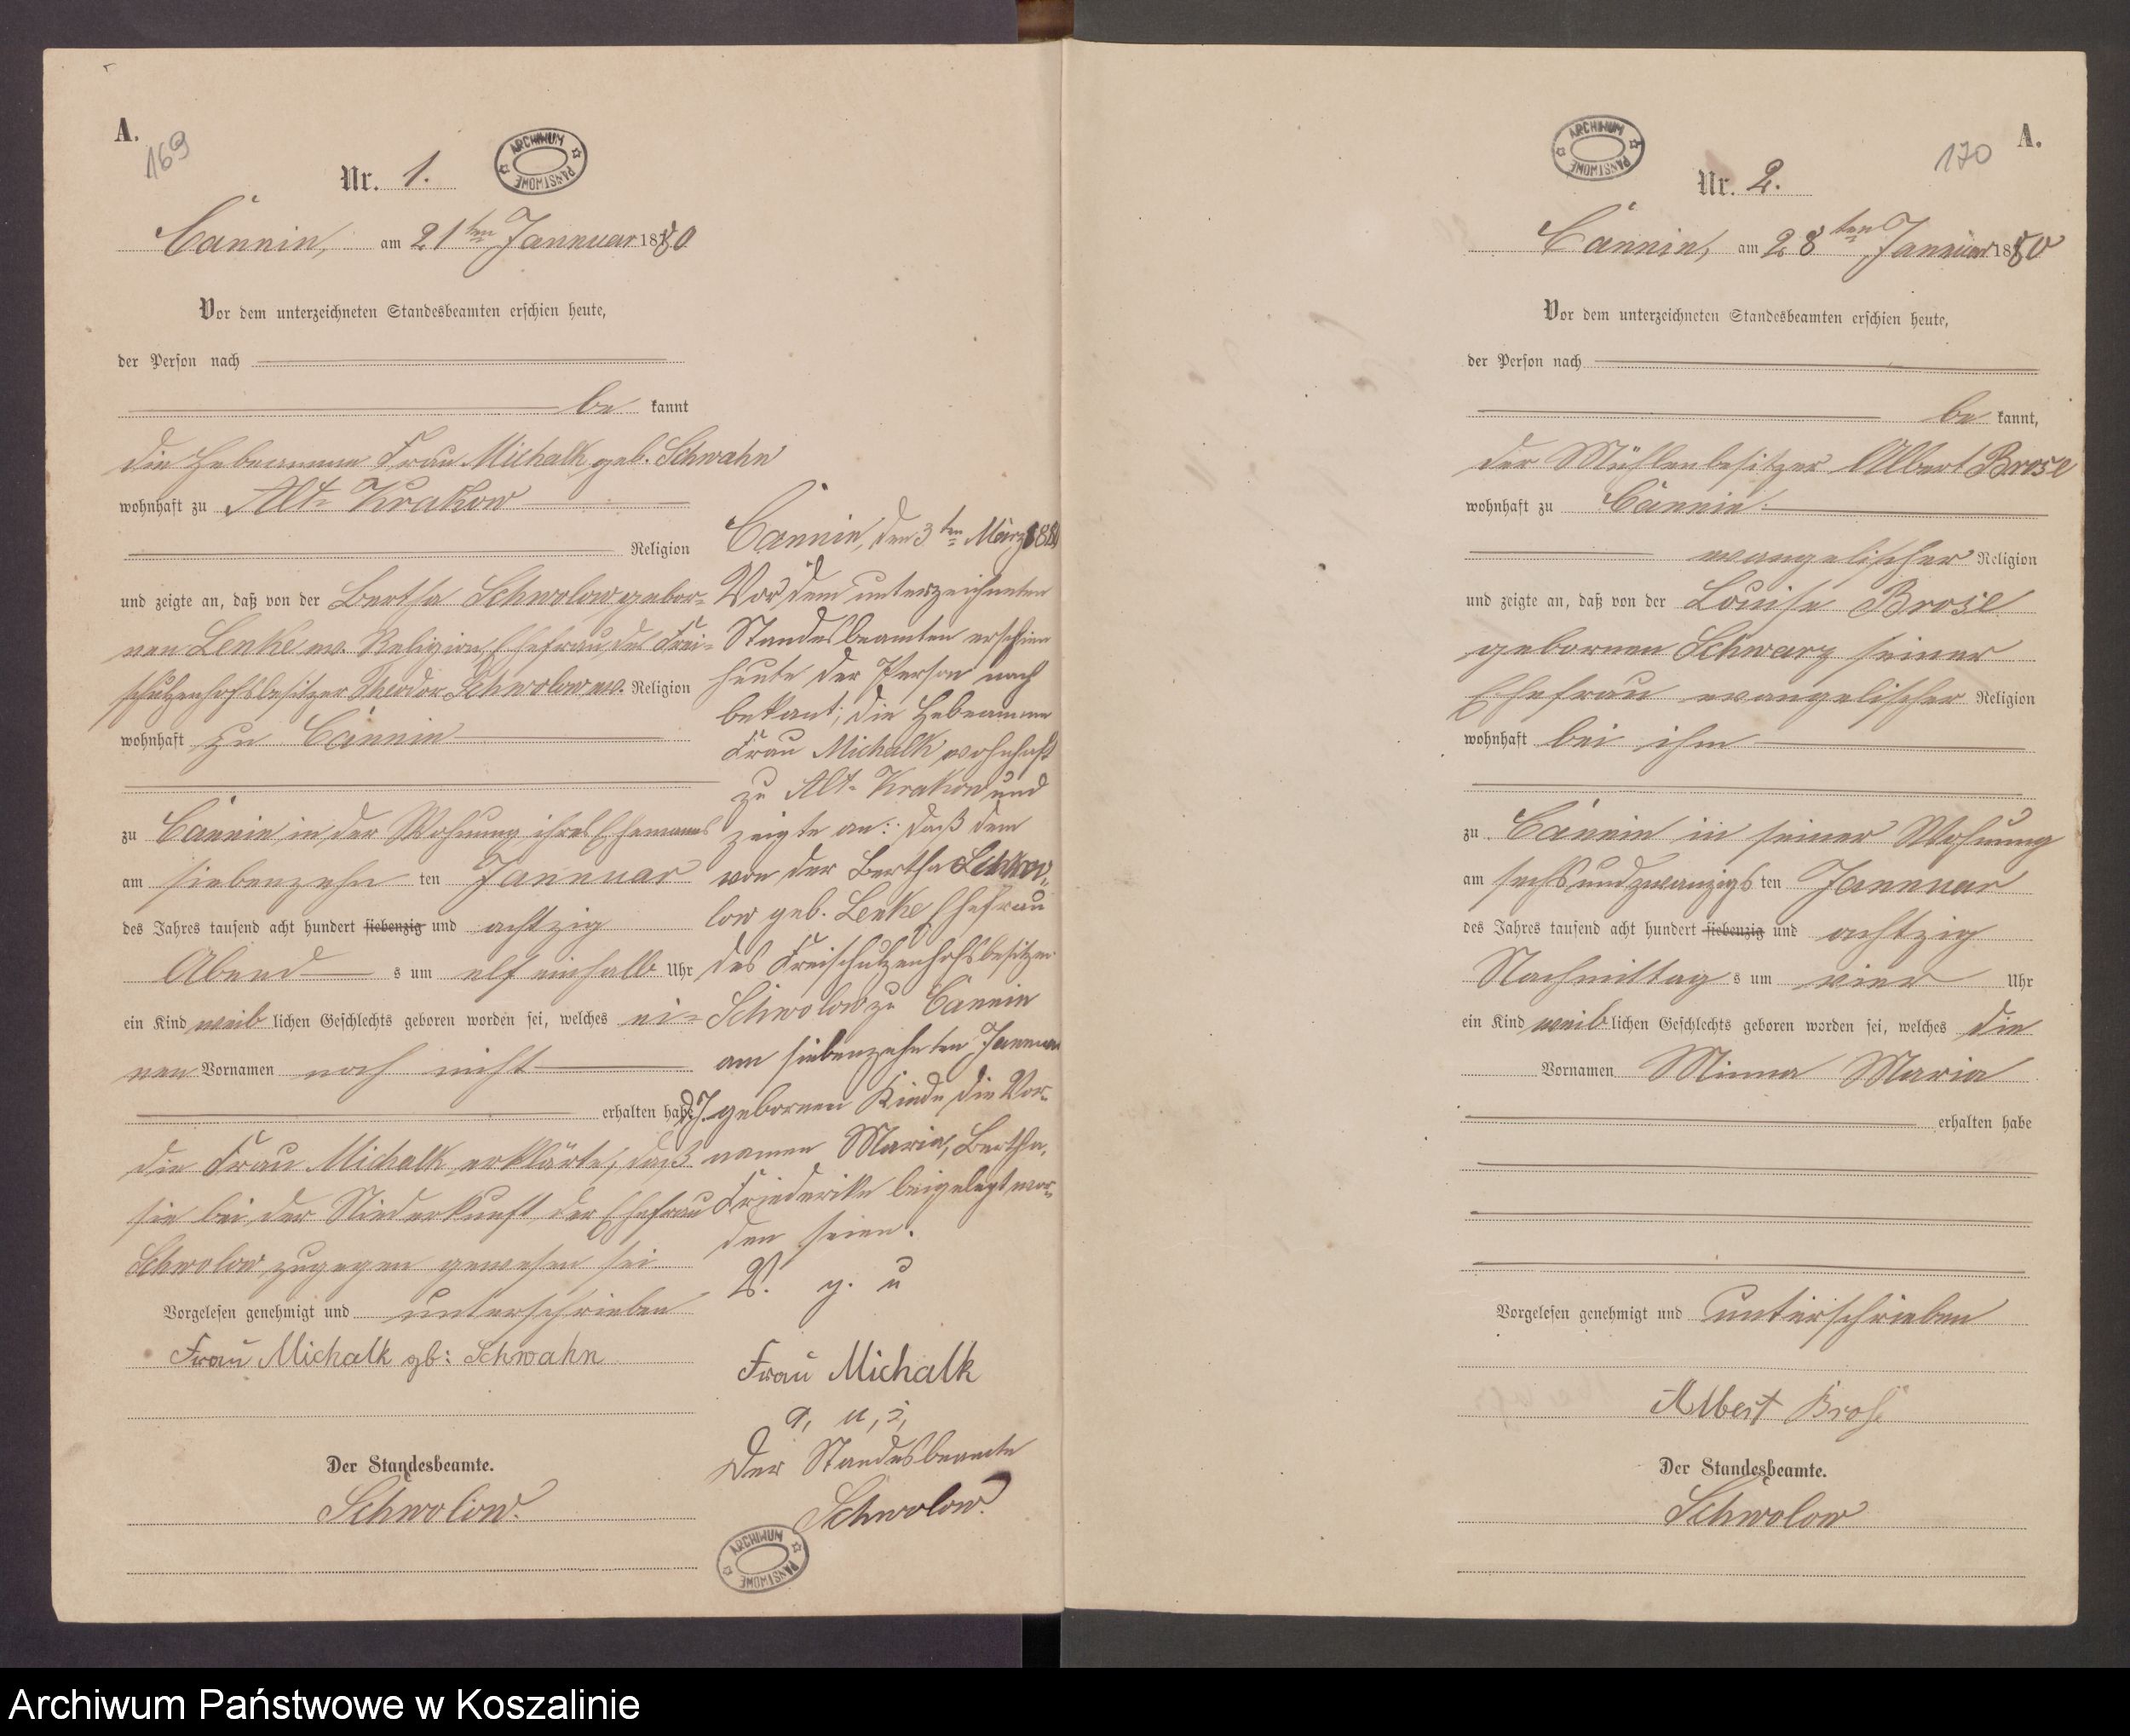 A.
169
ARCHIWUM PAŃSTWOWE
Nr. 1.
Cannin, am 21ten Jannuar 1880
Vor dem unterzeichneten Standesbeamten erschien heute,
der Person nach
be kannt
die Hebeamme Frau Michalk geb. Schwahn
wohnhaft zu Alt-Krakow
Religion
und zeigte an, daß von der Bertha Schwolow gebor-
nen Lenke ev. Religion, Ehefrau des Frei-
schulzenhofsbesitzer Theodor Schwolow ev. Religion
wohnhaft zu Cannin
zu Cannin in der Wohnung ihres Ehemannes
am siebenzehn ten Jannuar
des Jahres tausend acht hundert siebenzig und achtzig
Abend s um elf einhalb Uhr
ein Kind weib lichen Geschlechts geboren worden sei, welches ei-
nen Vornamen noch nicht
erhalten habe
die Frau Michalk erklärte, daß
sie bei der Niederkunft der Ehefrau
Schwolow zugegen gewesen sei
Vorgelesen genehmigt und unterschrieben
Frau Michalk gb: Schwahn
Der Standesbeamte.
Schwolow.
Cannin, den 3ten März 1880
Vor dem unterzeichneten
Standesbeamten erschien
heute der Person nach
bekant; die Hebeamme
Frau Michalk wohnhaft
zu Alt-Krakow und
zeigte an: daß dem
von der Bertha Schwo-
low geb. Lenke Ehefrau
des Freischulzenhofsbesitzer
Schwolow zu Cannin
am siebenzehnten Jannuar
d.J. gebornen Kinde die Vor-
namen Maria, Bertha,
Friederike beigelegt wor-
den seien.
V. g. u
Frau Michalk
a, u, s,
Der Standesbeamte
Schwolow.
ARCHIWUM PAŃSTWOWE
ARCHIWUM PAŃSTWOWE
170
A.
Nr. 2.
Cannin, am 28ten Jannuar 1880
Vor dem unterzeichneten Standesbeamten erschien heute,
der Person nach
be kannt,
der Mühlenbesitzer Albert Brose
wohnhaft zu Cannin
evangelischer Religion
und zeigte an, daß von der Louise Brose
gebornen Schwarz seiner
Ehefrau evangelischer Religion
wohnhaft bei ihm
zu Cannin in seiner Wohnung
am sechsundzwanzigs ten Jannuar
des Jahres tausend acht hundert siebenzig und achtzig
Nachmittag s um vier Uhr
ein Kind weib lichen Geschlechts geboren worden sei, welches die
Vornamen Minna Maria
erhalten habe
Vorgelesen genehmigt und unterschrieben
Albert Brose
Der Standesbeamte.
Schwolow
Archiwum Państwowe w Koszalinie